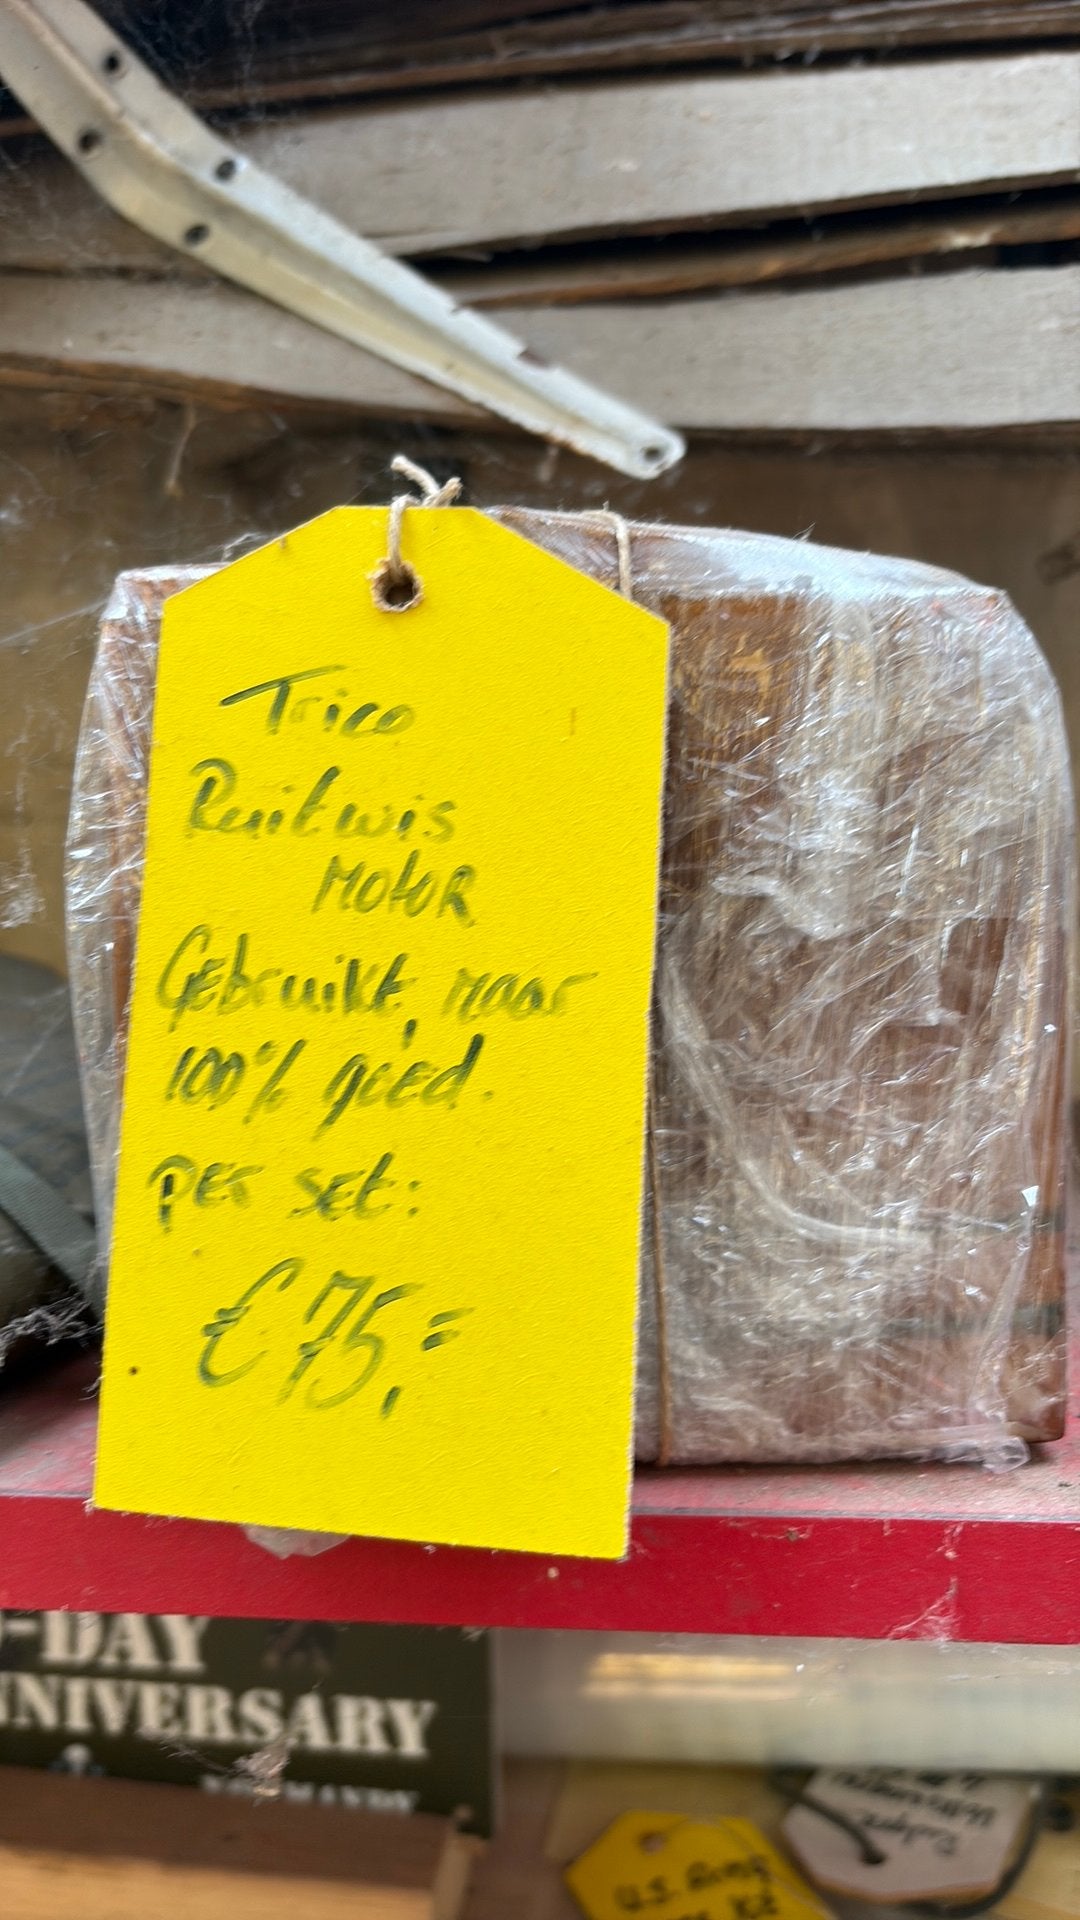 Trico
Ruitwis
MOTOR
Gebruikt, maar
100% goed.
per set:
€ 75,=
-DAY
NNIVERSARY
U.S. Army